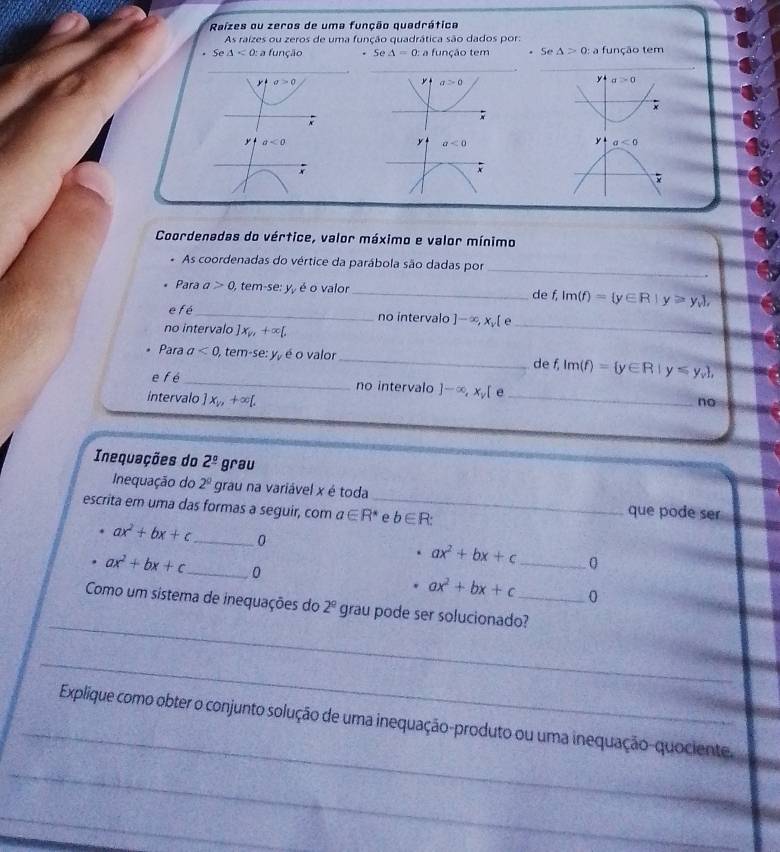 Raízes ou zeros de uma função quadrática
As raízes ou zeros de uma função quadrática são dados por:
• Se Δ < 0: a função • Se Δ = 0: a função tem • Se Δ > 0: a função tem
y a > 0 x y a > 0 x y a > 0 x
y a < 0 x y a < 0 x y a < 0 x
Coordenadas do vértice, valor máximo e valor mínimo
• As coordenadas do vértice da parábola são dadas por ____.
• Para a > 0, tem-se: yᵥ é o valor ____ de f, Im(f) = {y ∈ R | y ⩾ yᵥ},
e f é ____ no intervalo ]−∞, xᵥ[ e ____
no intervalo ]xᵥ, +∞[.
• Para a < 0, tem-se: yᵥ é o valor ____ de f, Im(f) = {y ∈ R | y ⩽ yᵥ},
e f é ____ no intervalo ]−∞, xᵥ[ e ____ no
intervalo ]xᵥ, +∞[.
Inequações do 2º grau
Inequação do 2º grau na variável x é toda ____ que pode ser
escrita em uma das formas a seguir, com a ∈ R* e b ∈ R:
• ax² + bx + c ____ 0 • ax² + bx + c ____ 0
• ax² + bx + c ____ 0 • ax² + bx + c ____ 0
Como um sistema de inequações do 2º grau pode ser solucionado?
Explique como obter o conjunto solução de uma inequação-produto ou uma inequação-quociente.